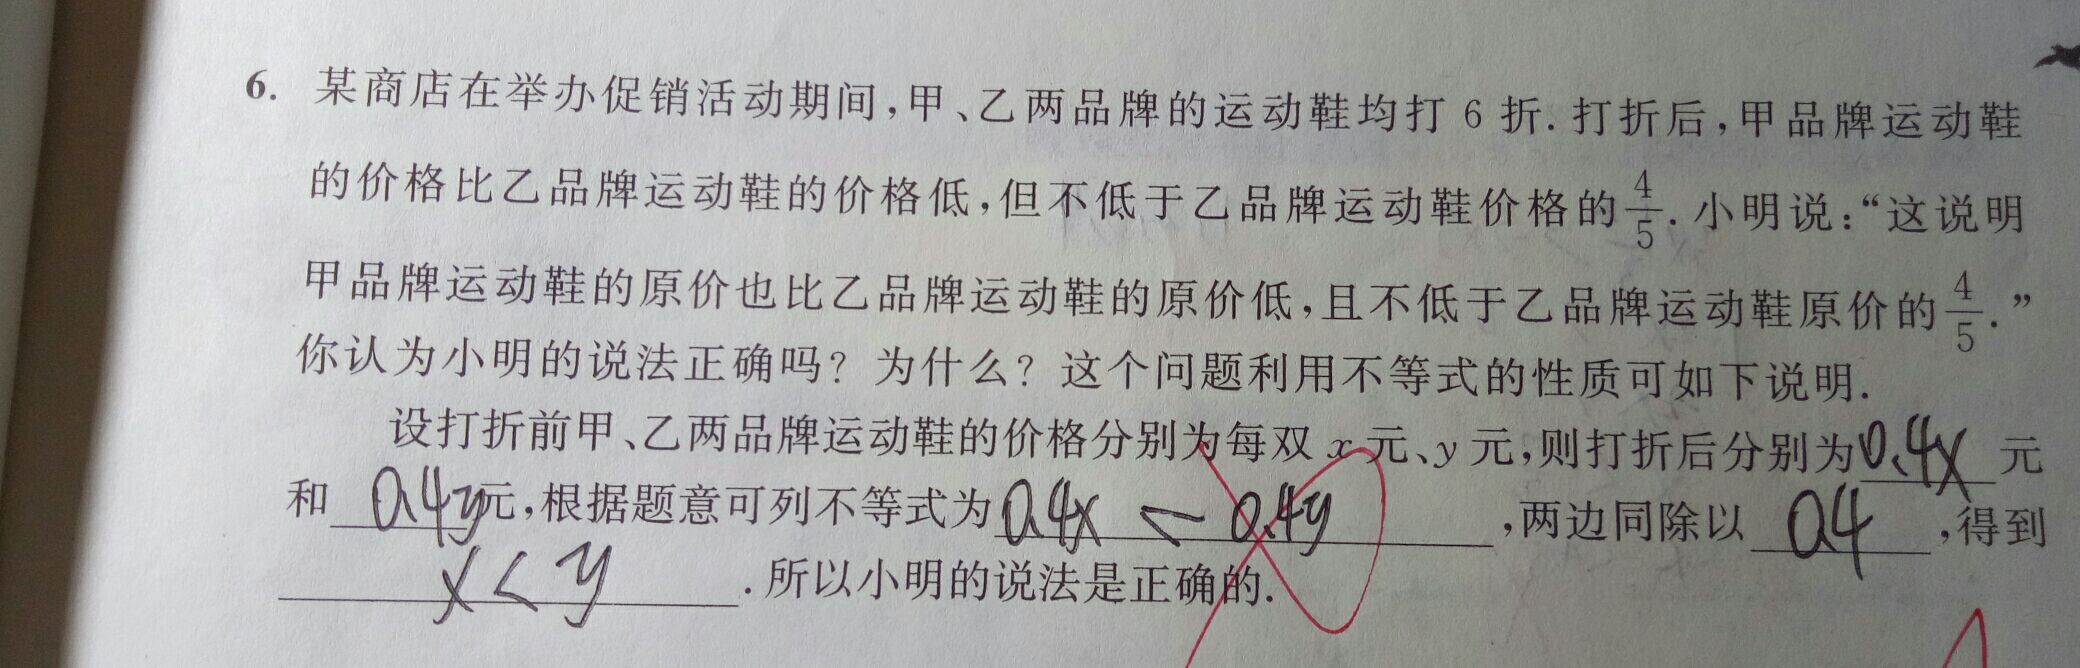 6. 某商店在举办促销活动期间,甲、乙两品牌的运动鞋均打 6 折. 打折后,甲品牌运动鞋
的价格比乙品牌运动鞋的价格低,但不低于乙品牌运动鞋价格的4/5. 小明说:“这说明
甲品牌运动鞋的原价也比乙品牌运动鞋的原价低,且不低于乙品牌运动鞋原价的4/5.”
你认为小明的说法正确吗? 为什么? 这个问题利用不等式的性质可如下说明.
设打折前甲、乙两品牌运动鞋的价格分别为每双 x 元、y 元,则打折后分别为0.4x 元
和 0.4y 元,根据题意可列不等式为 0.4x < 0.4y ,两边同除以 0.4 ,得到
x < y . 所以小明的说法是正确的.